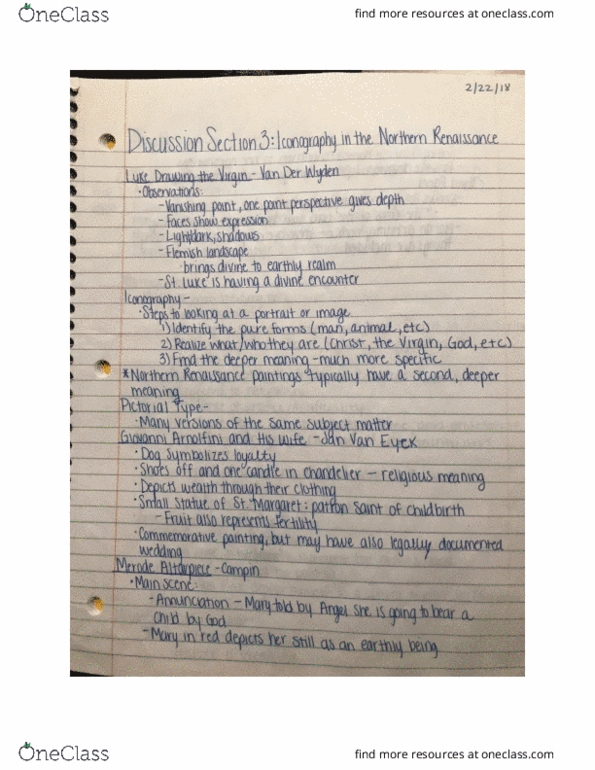 OneClass
find more resources at oneclass.com
2/22/18
Discussion Section 3: Iconography in the Northern Renaissance
Luke Drawing the Virgin - Van Der Wyden
• Observations:
- Vanishing point, one point perspective gives depth
- Faces show expression
- Light/dark, shadows
- Flemish landscape
• brings divine to earthly realm
- St. Luke is having a divine encounter
Iconography -
• Steps to looking at a portrait or image
1) Identify the pure forms (man, animal, etc)
2) Realize what/who they are (Christ, the Virgin, God, etc)
3) Find the deeper meaning - much more specific
*Northern Renaissance paintings typically have a second, deeper
meaning
Pictorial Type -
• Many versions of the same subject matter
Giovanni Arnolfini and His Wife - Jan Van Eyck
• Dog symbolizes loyalty
• Shoes off and one candle in chandelier - religious meaning
• Depicts wealth through their clothing
• Small statue of St. Margaret: patron saint of childbirth
- Fruit also represents fertility
• Commemorative painting, but may have also legally documented
wedding
Merode Altarpiece - Campin
• Main scene:
- Annunciation - Mary told by Angel she is going to bear a
child by God
- Mary in red depicts her still as an earthly being
OneClass
find more resources at oneclass.com